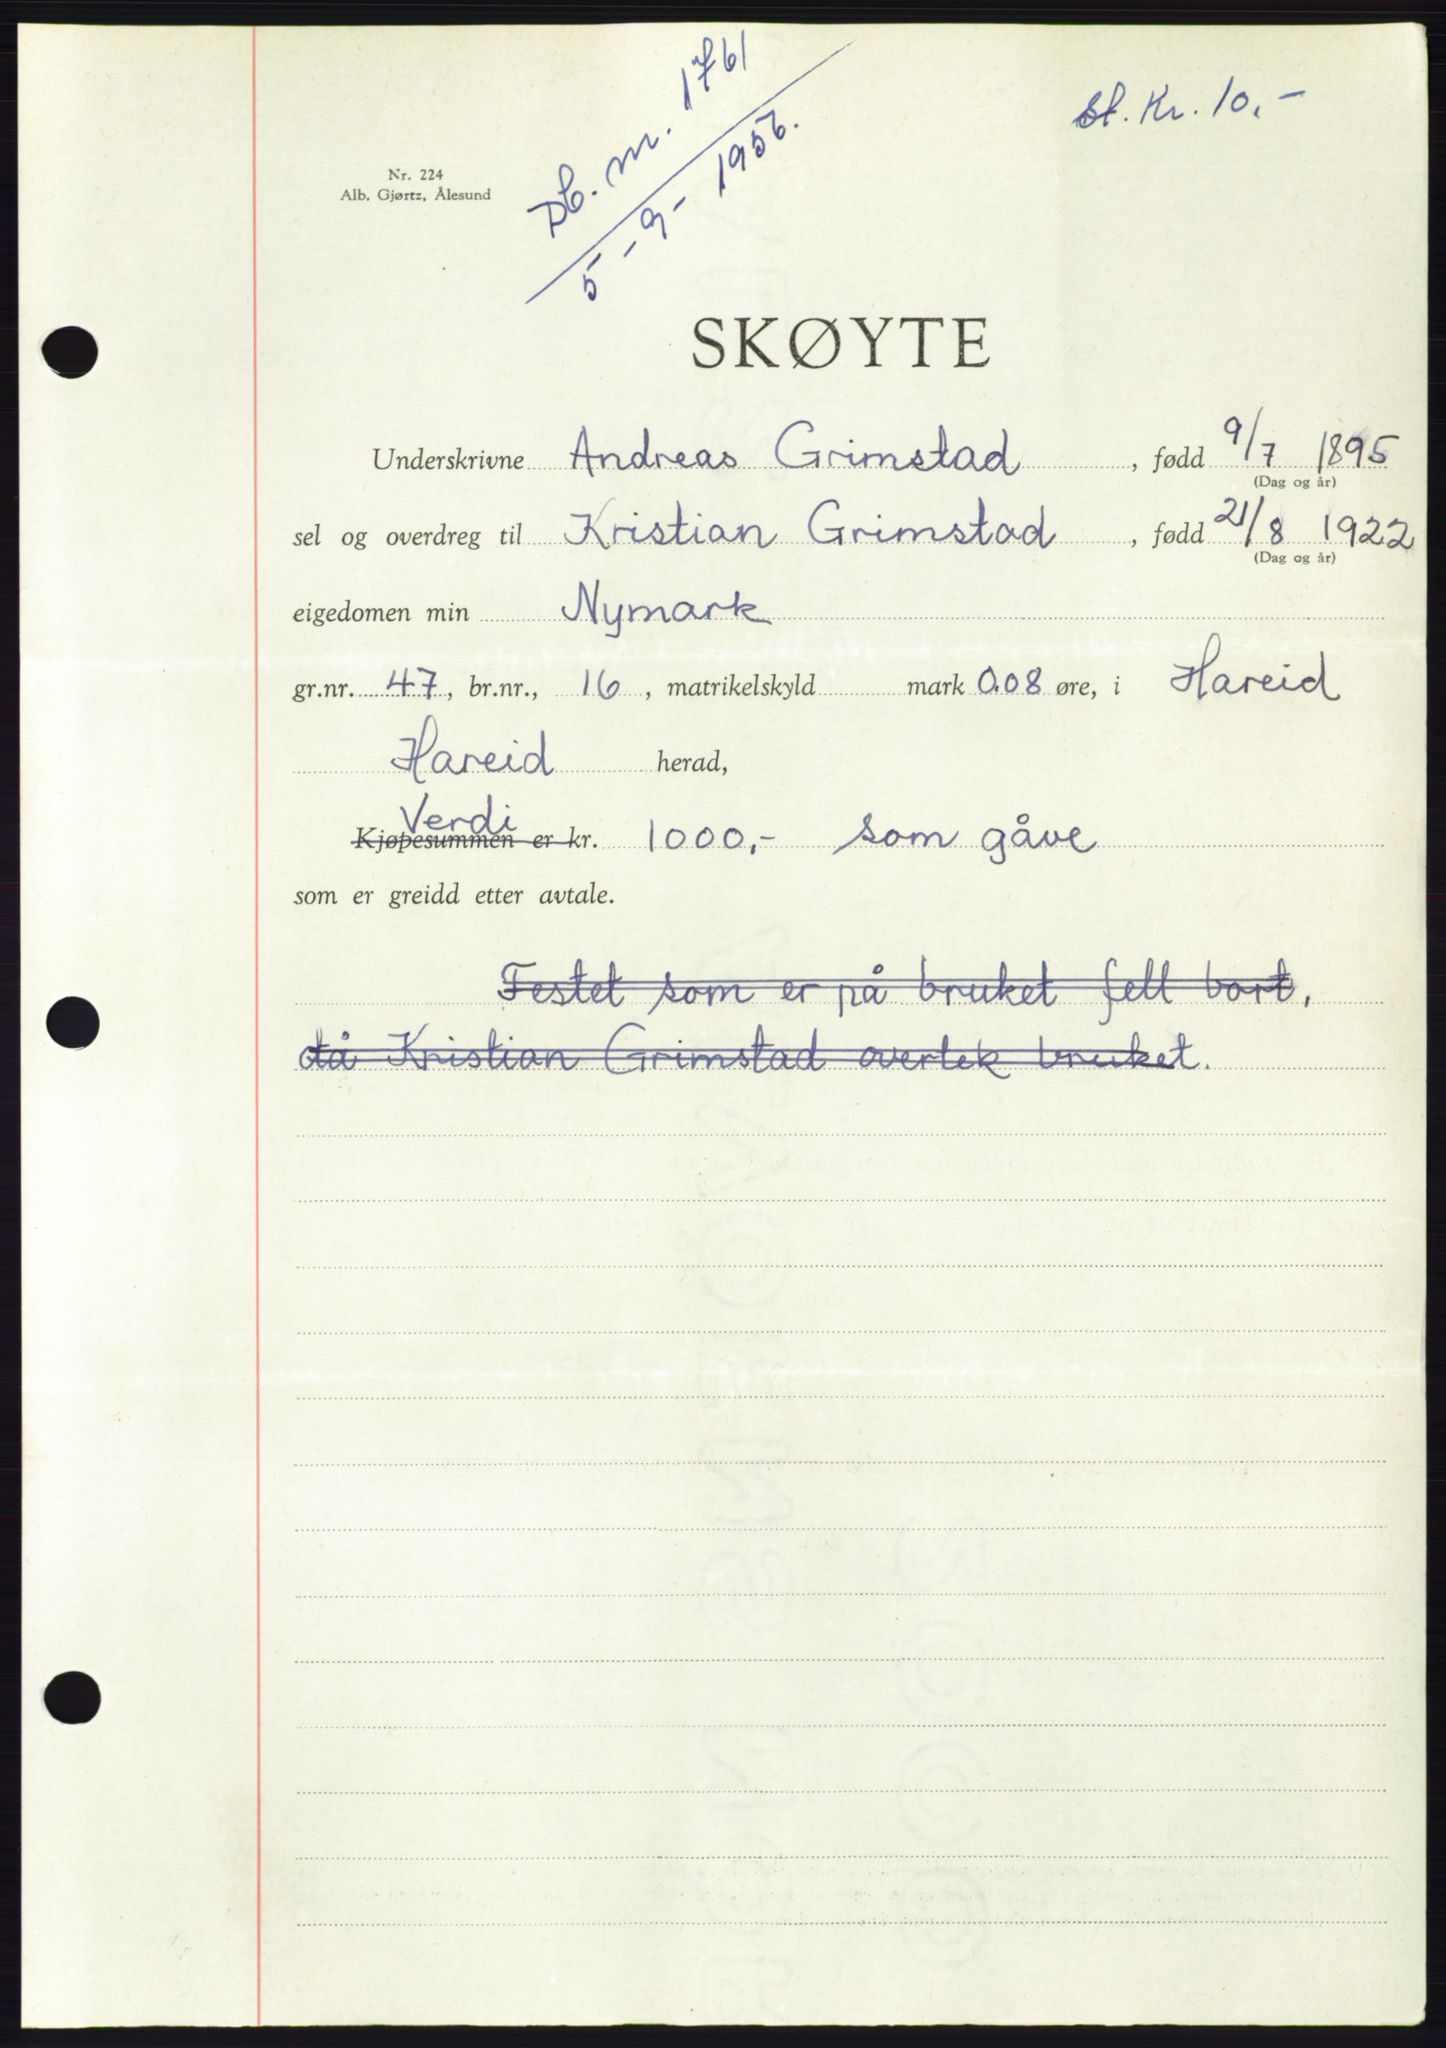 Db. nr. 1761
5-9-1956.
St. Kr. 10,-
Nr. 224
Alb. Gjørtz, Ålesund
SKØYTE
Underskrivne Andreas Grimstad, fødd 9/7 1895
(Dag og år)
sel og overdreg til Kristian Grimstad, fødd 21/8 1922
(Dag og år)
eigedomen min Nymark
gr.nr. 47, br.nr., 16, matrikelskyld mark 0.08 øre, i Hareid
Hareid herad,
Verdi
Kjøpesummen er kr. 1000,- som gåve
som er greidd etter avtale.
Festet som er på bruket fell bort,
då Kristian Grimstad overtek bruket.